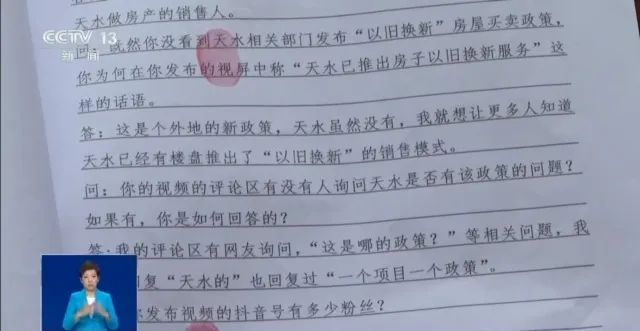 CCTV 13
新闻
天水做房产的销售人。
问：既然你没看到天水相关部门发布“以旧换新”房屋买卖政策，
你为何在你发布的视屏中称“天水已推出房子以旧换新服务”这
样的话语。
答：这是个外地的新政策，天水虽然没有，我就想让更多人知道
天水已经有楼盘推出了“以旧换新”的销售模式。
问：你的视频的评论区有没有人询问天水是否有该政策的问题？
如果有，你是如何回答的？
答：我的评论区有网友询问，“这是哪的政策？”等相关问题，我
回复“天水的”也回复过“一个项目一个政策”。
发布视频的抖音号有多少粉丝？